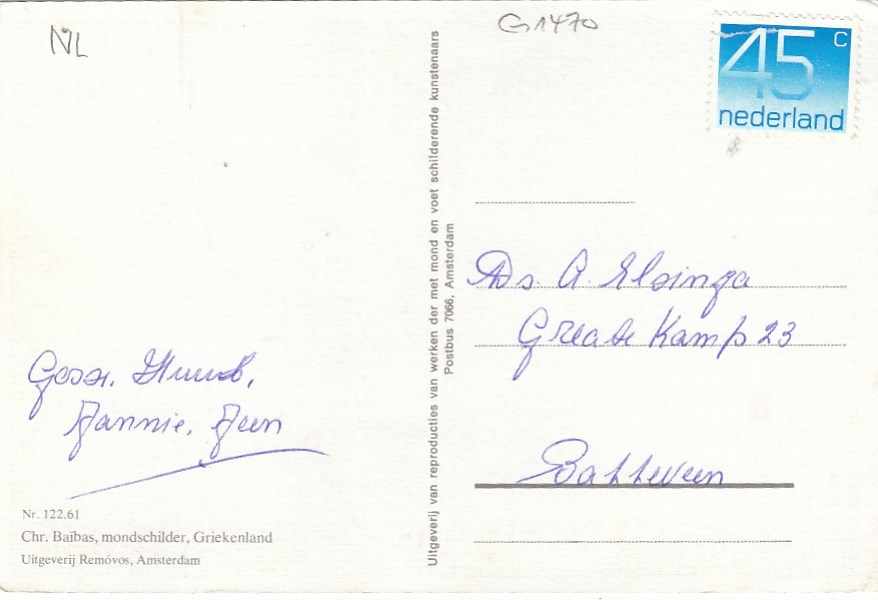 NL
G1470
45 C
nederland
Uitgeverij van reproducties van werken der met mond en voet schilderende kunstenaars
Postbus 7066, Amsterdam
Ds. A. Elsinga
Greate Kamp 23
Gosse,
Jannie, Jeen
Nr. 122.61
Chr. Baïbas, mondschilder, Griekenland
Uitgeverij Remóvos, Amsterdam